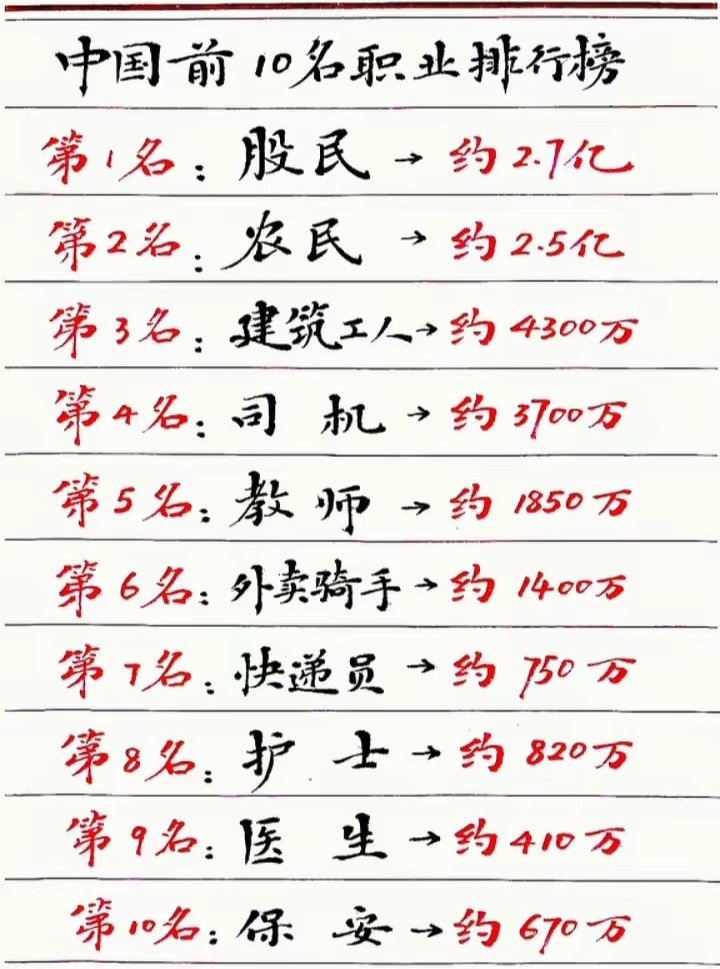 中国前10名职业排行榜
第1名：股民→约2.7亿
第2名：农民→约2.5亿
第3名：建筑工人→约4300万
第4名：司机→约3700万
第5名：教师→约1850万
第6名：外卖骑手→约1400万
第7名：快递员→约750万
第8名：护士→约820万
第9名：医生→约410万
第10名：保安→约670万